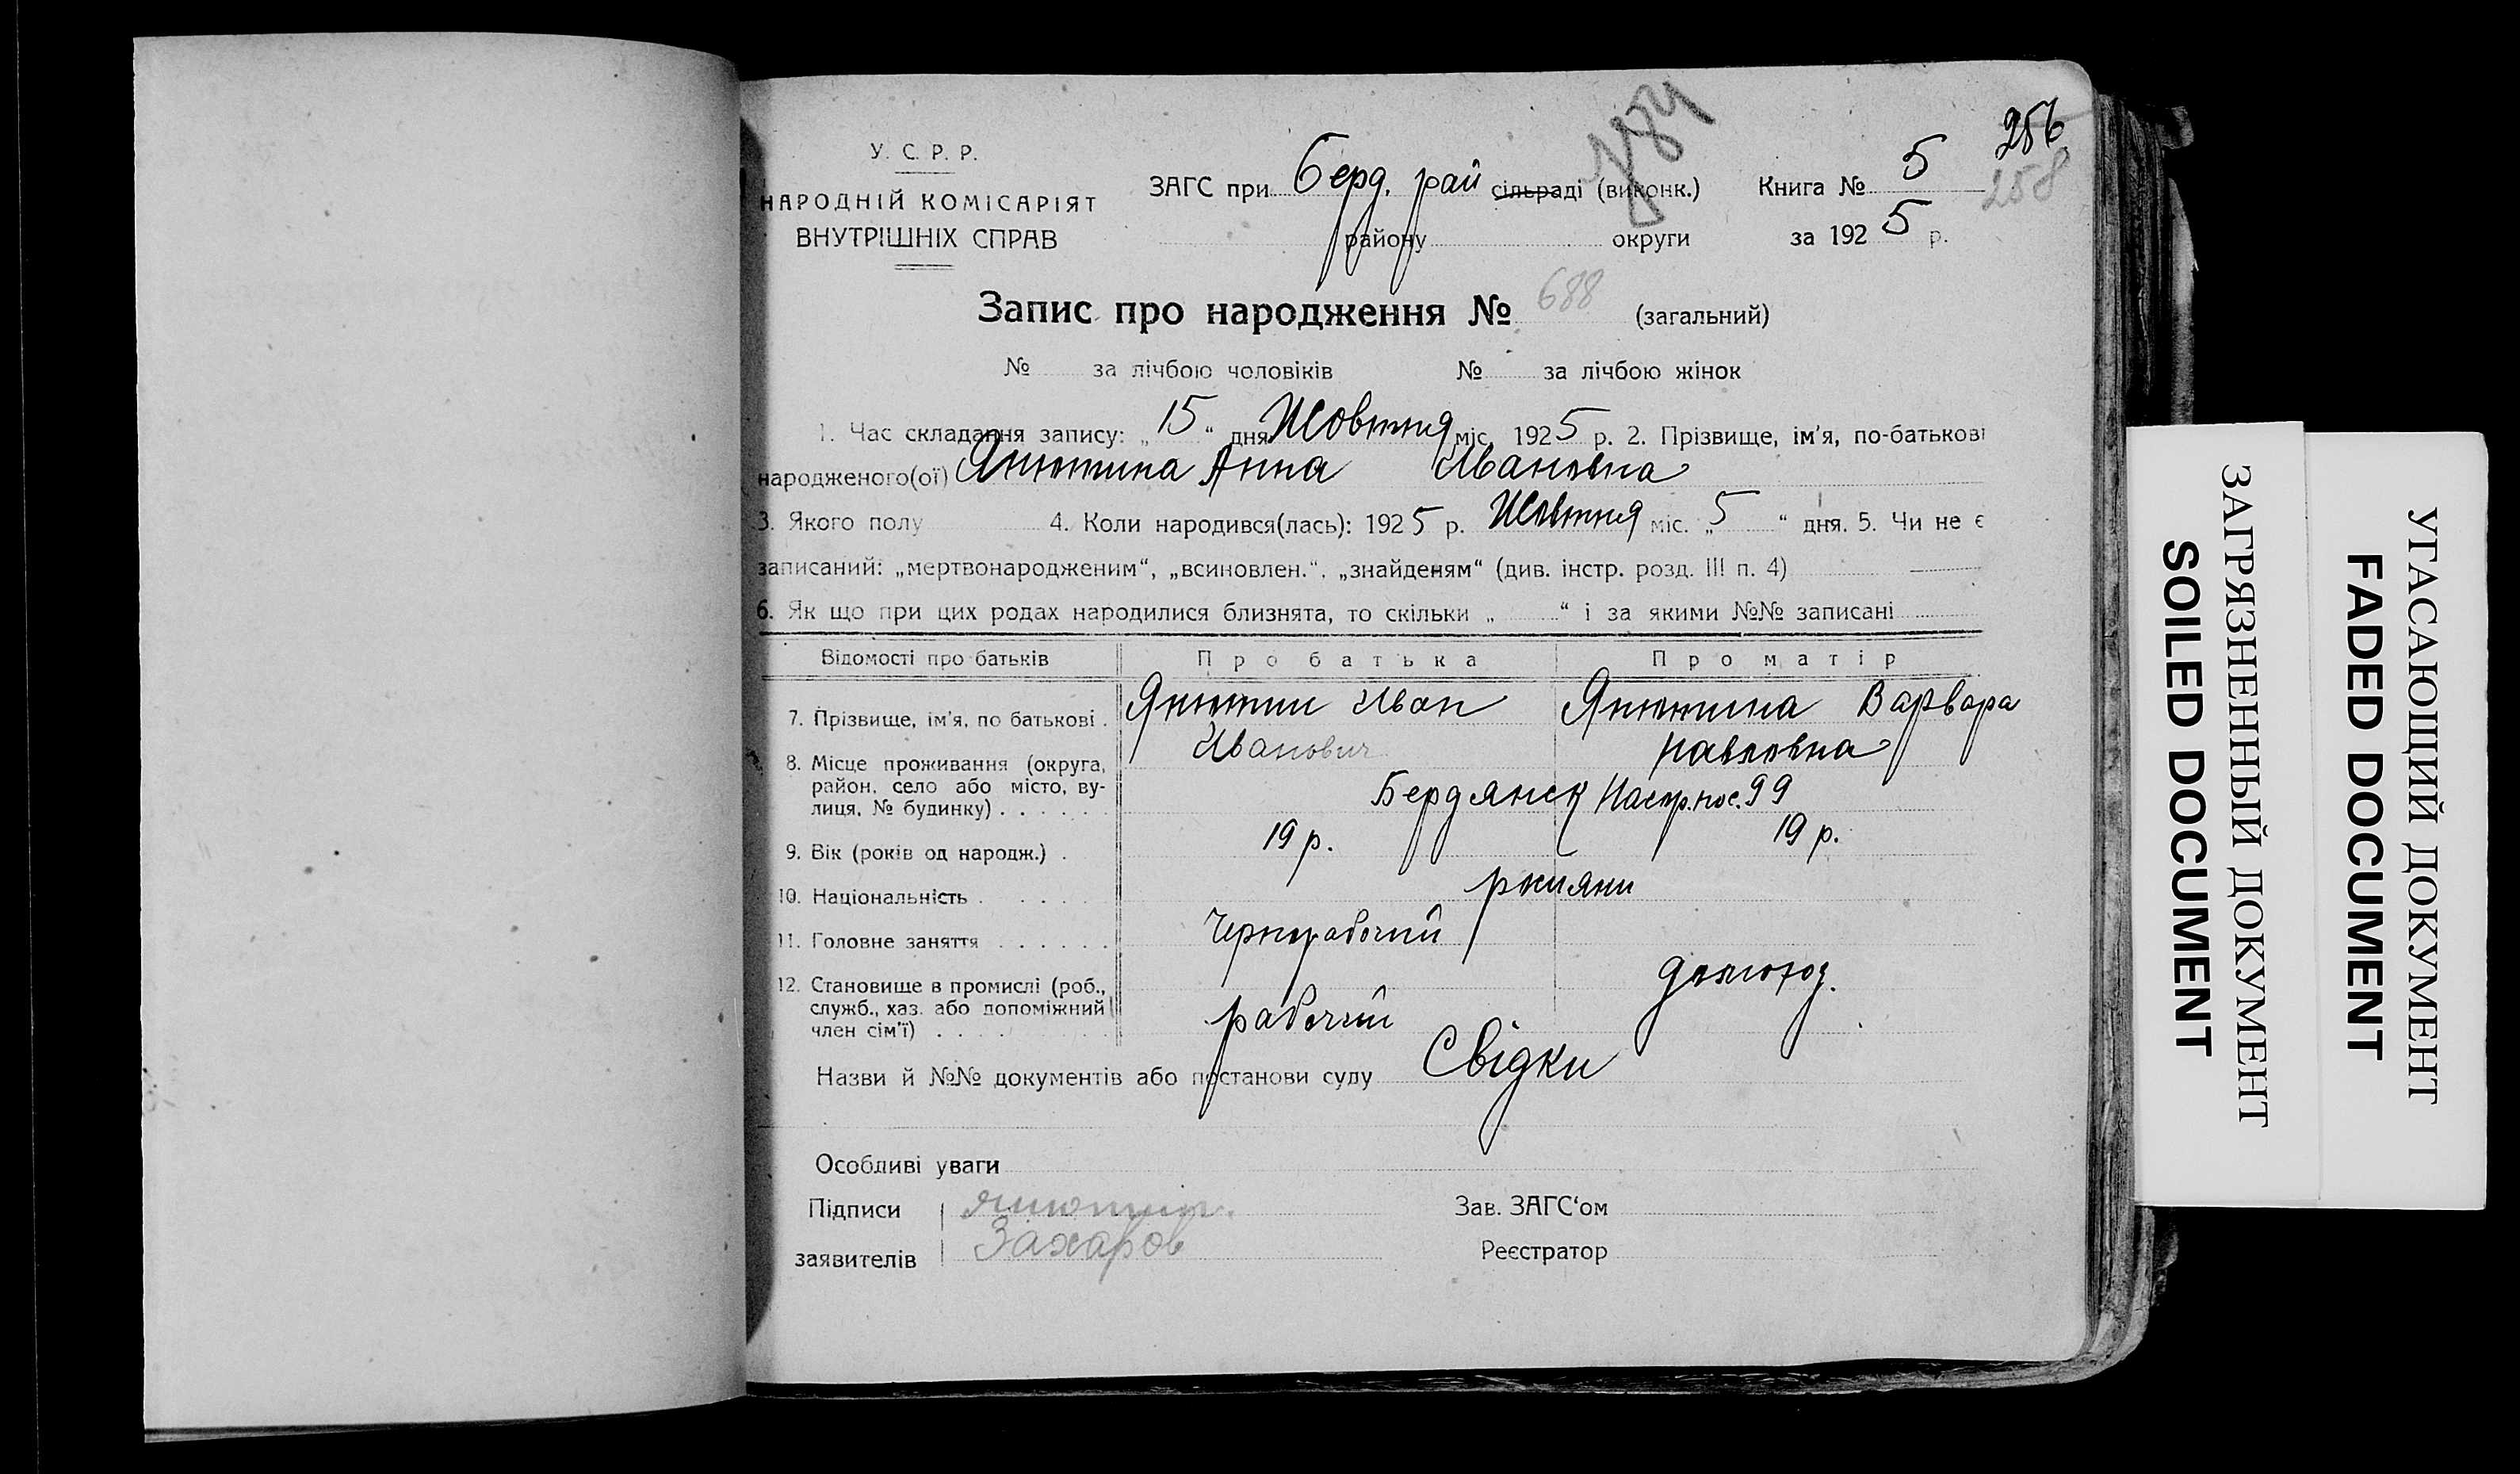 256
258
У. С. Р. Р.
НАРОДНІЙ КОМІСАРІЯТ
ВНУТРІШНІХ СПРАВ
ЗАГС при Берд. рай сільраді (виконк.) Книга № 5
району округи за 1925 р.
Запис про народження № 688 (загальний)
№ за лічбою чоловіків № за лічбою жінок
1. Час складання запису: „15“ дня Жовтня міс. 1925 р. 2. Прізвище, ім'я, по-батькові
народженого(ої) Янютина Анна Ивановна
3. Якого полу 4. Коли народився(лась): 1925 р. Жовтня міс. „5“ дня. 5. Чи не є
записаний: „мертвонародженим“, „всиновлен.“, „знайденям“ (див. інстр. розд. III п. 4)
6. Як що при цих родах народилися близнята, то скільки „ “ і за якими №№ записані
Відомості про батьків Про батька Про матір
7. Прізвище, ім'я, по батькові . Янютин Иван Янютина Варвара
Иванович Павловна
8. Місце проживання (округа,
район, село або місто, ву-
лиця, № будинку) . . . . . . Бердянск 99
9. Вік (років од народж.) . 19 р. 19 р.
10. Національність . . . . . .
11. Головне заняття . . . . . . Чернорабочий
12. Становище в промислі (роб.,
служб., хаз. або допоміжний
член сім'ї) . . . . рабочий
Назви й №№ документів або постанови суду Свідки
Особливі уваги
Підписи Янютин. Зав. ЗАГС'ом
заявителів Захаров Реєстратор
ЗАГРЯЗНЕННЫЙ ДОКУМЕНТ
SOILED DOCUMENT
УГАСАЮЩИЙ ДОКУМЕНТ
FADED DOCUMENT